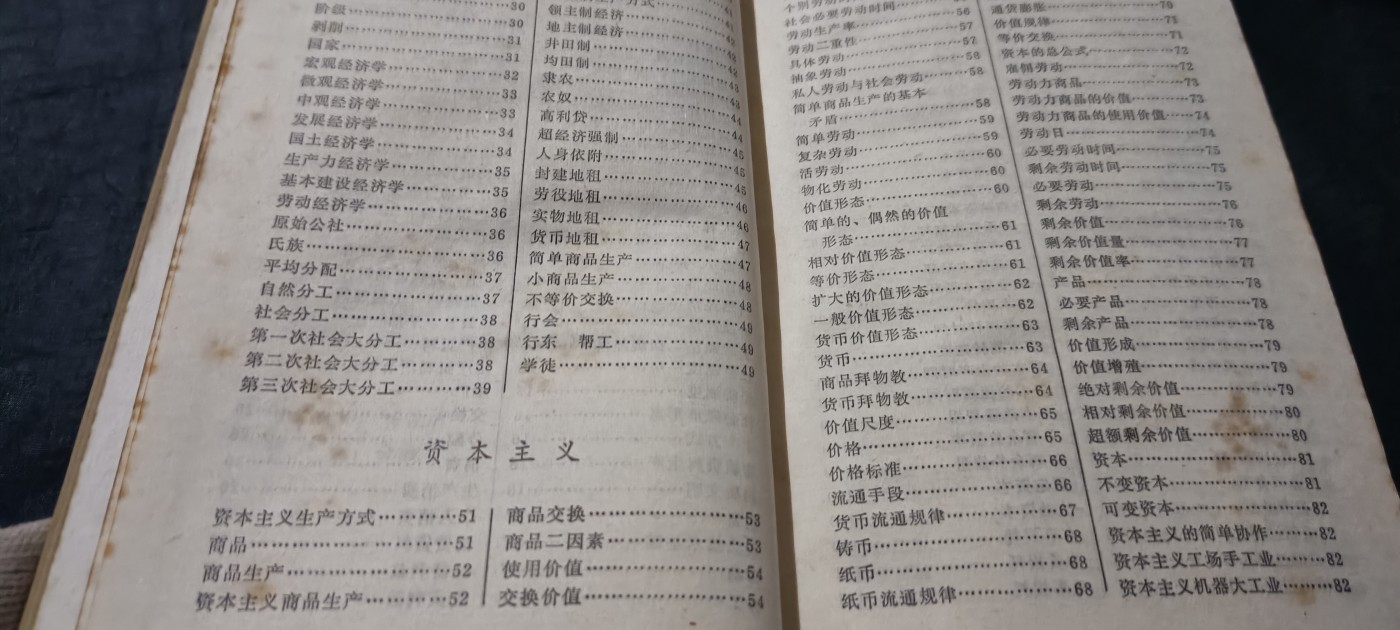 阶级…………30
剥削…………31
国家…………31
宏观经济学…………32
微观经济学…………33
中观经济学…………33
发展经济学…………34
国土经济学…………34
生产力经济学…………35
基本建设经济学…………35
劳动经济学…………36
原始公社…………36
氏族…………36
平均分配…………37
自然分工…………37
社会分工…………38
第一次社会大分工…………38
第二次社会大分工…………38
第三次社会大分工…………39
领主制经济
地主制经济
井田制
均田制
隶农
农奴
高利贷…………44
超经济强制…………44
人身依附…………45
封建地租…………45
劳役地租…………46
实物地租…………46
货币地租…………47
简单商品生产…………47
小商品生产…………48
不等价交换…………48
行会…………49
行东 帮工…………49
学徒…………49
资本主义
资本主义生产方式…………51
商品…………51
商品生产…………52
资本主义商品生产…………52
商品交换…………53
商品二因素…………53
使用价值…………54
交换价值…………54
社会必要劳动时间…………56
劳动生产率…………57
劳动二重性…………57
具体劳动…………58
抽象劳动…………58
私人劳动与社会劳动…………58
简单商品生产的基本
矛盾…………58
简单劳动…………59
复杂劳动…………59
活劳动…………60
物化劳动…………60
价值形态…………60
简单的、偶然的价值
形态…………61
相对价值形态…………61
等价形态…………61
扩大的价值形态…………62
一般价值形态…………62
货币价值形态…………63
货币…………63
商品拜物教…………64
货币拜物教…………64
价值尺度…………65
价格…………65
价格标准…………66
流通手段…………66
货币流通规律…………67
铸币…………68
纸币…………68
纸币流通规律…………68
通货膨胀…………70
价值规律…………71
等价交换…………71
资本的总公式…………72
雇佣劳动…………72
劳动力商品…………73
劳动力商品的价值…………73
劳动力商品的使用价值…………74
劳动日…………74
必要劳动时间…………75
剩余劳动时间…………75
必要劳动…………75
剩余劳动…………76
剩余价值…………76
剩余价值量…………77
剩余价值率…………77
产品…………78
必要产品…………78
剩余产品…………78
价值形成…………79
价值增殖…………79
绝对剩余价值…………79
相对剩余价值…………80
超额剩余价值…………80
资本…………81
不变资本…………81
可变资本…………82
资本主义的简单协作…………82
资本主义工场手工业…………82
资本主义机器大工业…………82